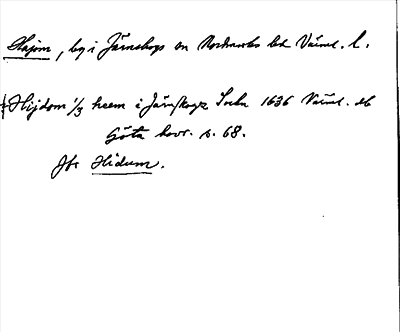 Häjom, by i Järnskogs sn Nordmarks hd Värml. l.
Hijdom 1/3 heem i Järskogz Sockn 1636 Värml. db
Göta hovr. s. 68.
Jfr Hidum.